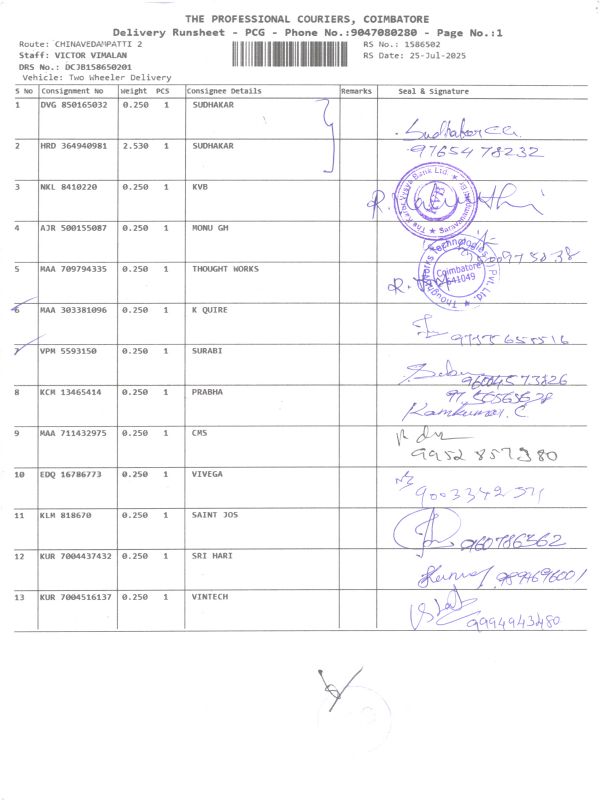 THE PROFESSIONAL COURIERS, COIMBATORE
Delivery Runsheet - PCG - Phone No.:9047080280 - Page No.:1
Route: CHINAVEDAMPATTI 2 RS No.: 1586502
Staff: VICTOR VIMALAN RS Date: 25-Jul-2025
DRS No.: DCJB158650201
Vehicle: Two Wheeler Delivery
S No Consignment No Weight PCS Consignee Details Remarks Seal & Signature
1 DVG 850165032 0.250 1 SUDHAKAR
Sudhakar
2 HRD 364940981 2.530 1 SUDHAKAR
9765478232
3 NKL 8410220 0.250 1 KVB
The Karur Vysya Bank Ltd. ★ Saravanampatti ★
KVB
4 AJR 500155087 0.250 1 MONU GH
5 MAA 709794335 0.250 1 THOUGHT WORKS
Thoughtworks Technologies (I) Pvt. Ltd. ★
Coimbatore
641049
6 MAA 303381096 0.250 1 K QUIRE
7 VPM 5593150 0.250 1 SURABI
96004573826
8 KCM 13465414 0.250 1 PRABHA
Ramkumar. C
9 MAA 711432975 0.250 1 CMS
9952857380
10 EDQ 16786773 0.250 1 VIVEGA
9003342571
11 KLM 818670 0.250 1 SAINT JOS
12 KUR 7004437432 0.250 1 SRI HARI
13 KUR 7004516137 0.250 1 VINTECH
9994943480